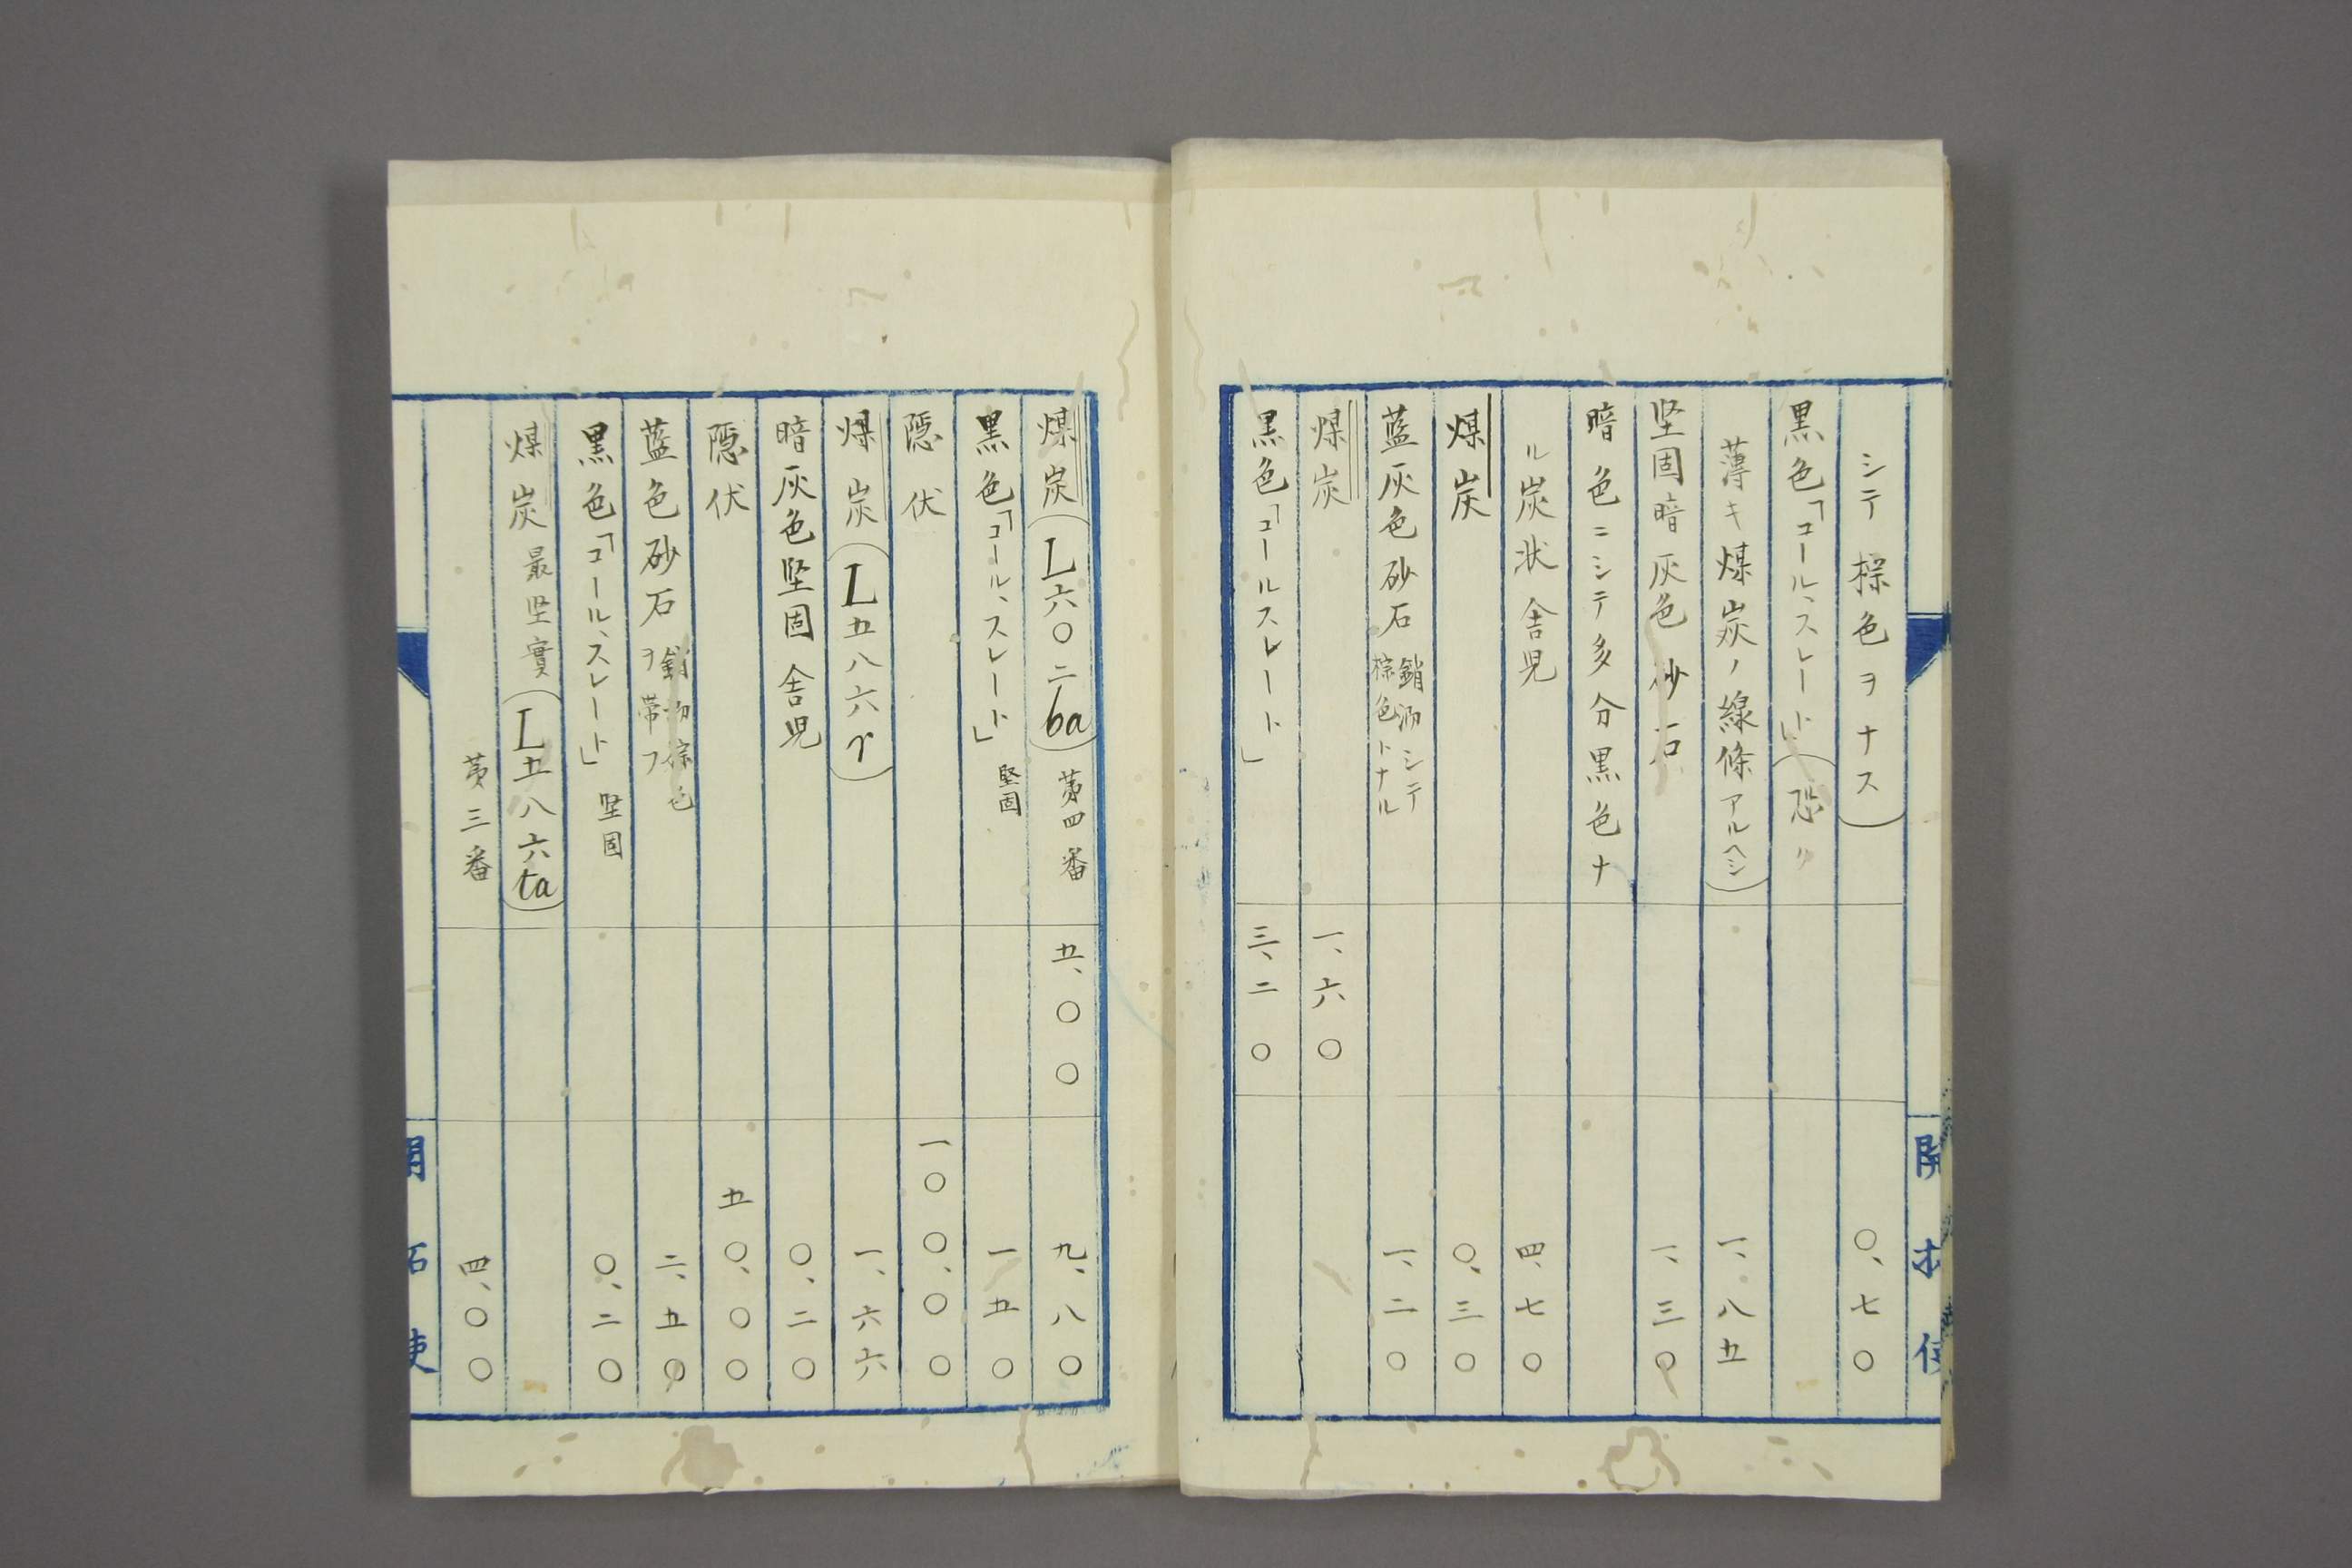 シテ棕色ヲナス） 〇、七〇
黒色「コール、スレート」（恐ク
薄キ煤炭ノ線條アルヘシ） 一、八五
坚固暗灰色砂石 一、三〇
暗色ニシテ多分黒色ナ
ル炭状舎児 四、七〇
煤炭 〇、三〇
藍灰色砂石 銷沕シテ棕色トナル 一、二〇
煤炭 一、六〇
黒色「コールスレート」 三、二〇
開拓使
煤炭（L六〇二ba） 苐四番 五、〇〇 九、八〇
黒色「コール、スレート」 堅固 一、五〇
隠伏 一〇〇、〇〇
煤炭（L五八六r） 一、六六
暗灰色坚固舎児 〇、二〇
隠伏 五〇、〇〇
藍色砂石 銷沕棕色ヲ帯フ 二、五〇
黒色「コール、スレート」 坚固 〇、二〇
煤炭 最坚實（L五八六ta）
苐三番 四、〇〇
開拓使